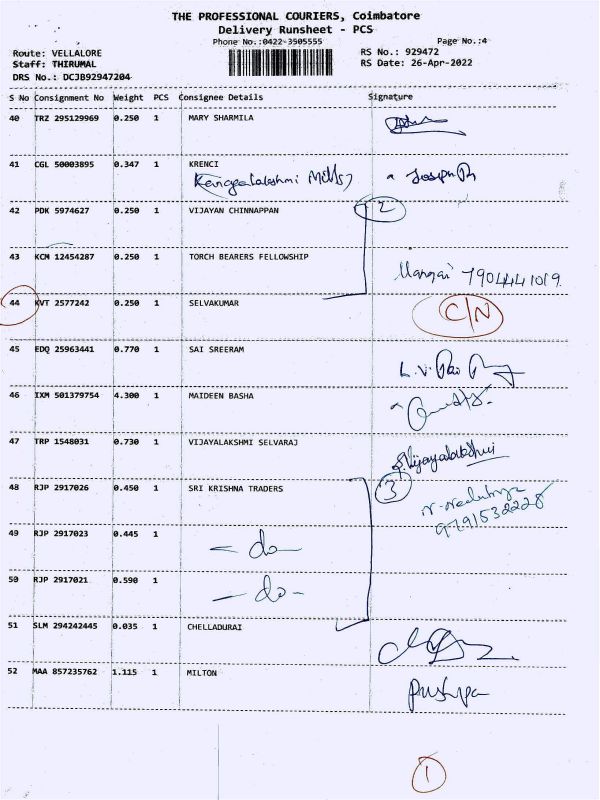 THE PROFESSIONAL COURIERS, Coimbatore
Delivery Runsheet - PCS
Phone No.:0422-3505555 Page No.:4
Route: VELLALORE RS No.: 929472
Staff: THIRUMAL RS Date: 26-Apr-2022
DRS No.: DCJB92947204
S No Consignment No Weight PCS Consignee Details Signature
40 TRZ 295129969 0.250 1 MARY SHARMILA
41 CGL 50003895 0.347 1 KRENCI
Mills
42 PDK 5974627 0.250 1 VIJAYAN CHINNAPPAN 2
43 KCM 12454287 0.250 1 TORCH BEARERS FELLOWSHIP
Mangai 7904441019
44 KVT 2577242 0.250 1 SELVAKUMAR C/N
45 EDQ 25963441 0.770 1 SAI SREERAM
46 IXM 501379754 4.300 1 MAIDEEN BASHA
47 TRP 1548031 0.730 1 VIJAYALAKSHMI SELVARAJ
S.Vijayalakshmi
48 RJP 2917026 0.450 1 SRI KRISHNA TRADERS 3
9791532228
49 RJP 2917023 0.445 1 - do -
50 RJP 2917021 0.590 1 - do -
51 SLM 294242445 0.035 1 CHELLADURAI
52 MAA 857235762 1.115 1 MILTON
Pushpa
1